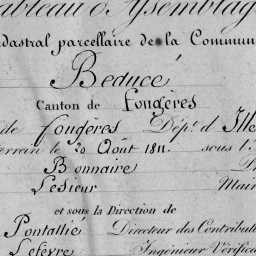 ableau d'Assemblag
adastral parcellaire de la Commun
Beaucé
Canton de fougères
de fougères Dépt. d' Ille
errain le 20 Août 1811 sous l'
Bonnaire
Lesieur Mair
et sous la Direction de
Pontallié Directeur des Contributi
Lefèvre Ingénieur Vérifica